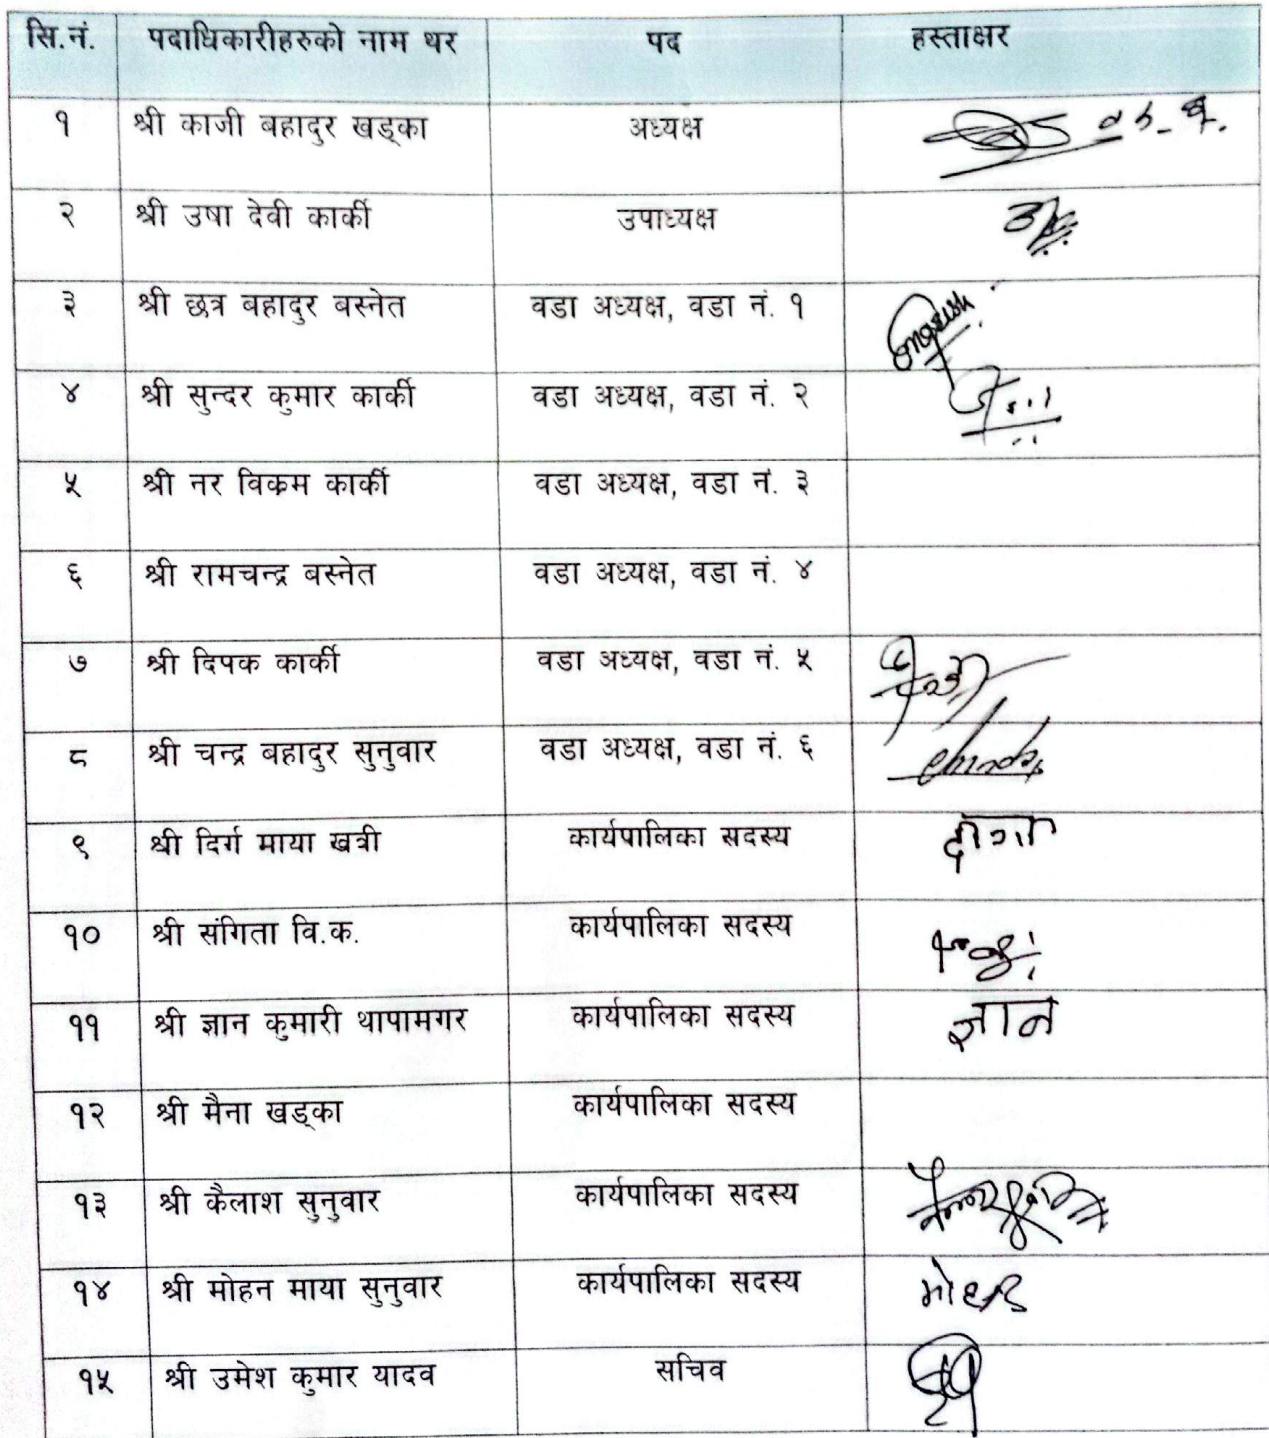 सि.नं. पदाधिकारीहरुको नाम थर पद हस्ताक्षर
१ श्री काजी बहादुर खड्का अध्यक्ष
२ श्री उषा देवी कार्की उपाध्यक्ष
३ श्री छत्र बहादुर बस्नेत वडा अध्यक्ष, वडा नं. १
४ श्री सुन्दर कुमार कार्की वडा अध्यक्ष, वडा नं. २
५ श्री नर विक्रम कार्की वडा अध्यक्ष, वडा नं. ३
६ श्री रामचन्द्र बस्नेत वडा अध्यक्ष, वडा नं. ४
७ श्री दिपक कार्की वडा अध्यक्ष, वडा नं. ५
८ श्री चन्द्र बहादुर सुनुवार वडा अध्यक्ष, वडा नं. ६
९ श्री दिर्ग माया खत्री कार्यपालिका सदस्य
१० श्री संगिता वि.क. कार्यपालिका सदस्य
११ श्री ज्ञान कुमारी थापामगर कार्यपालिका सदस्य ज्ञान
१२ श्री मैना खड्का कार्यपालिका सदस्य
१३ श्री कैलाश सुनुवार कार्यपालिका सदस्य
१४ श्री मोहन माया सुनुवार कार्यपालिका सदस्य
१५ श्री उमेश कुमार यादव सचिव